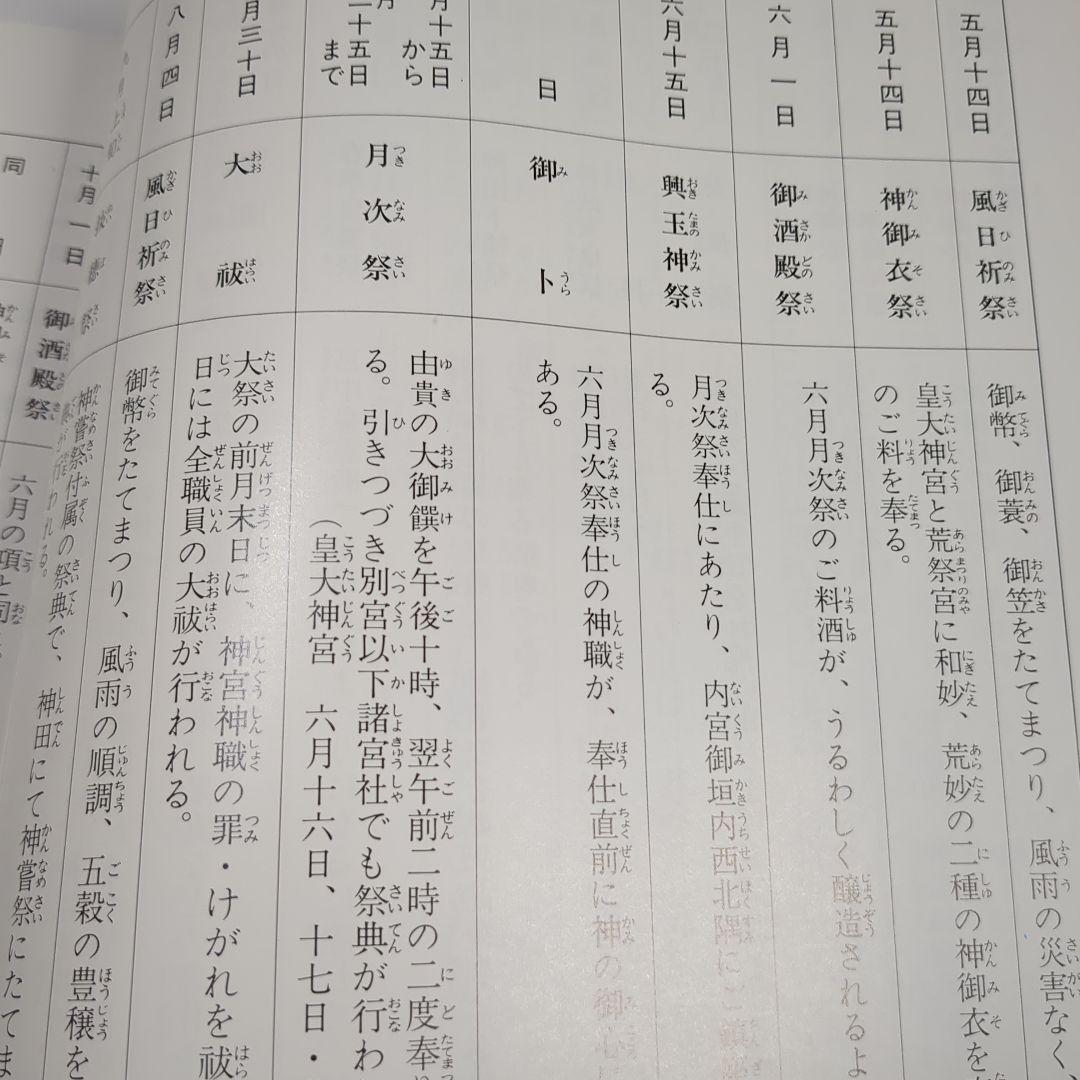 五月十四日
風日祈祭
御幣、御蓑、御笠をたてまつり、風雨の災害なく、
五月十四日
神御衣祭
皇大神宮と荒祭宮に和妙、荒妙の二種の神御衣を
のご料を奉る。
六月一日
御酒殿祭
六月月次祭のご料酒が、うるわしく醸造されるよ
六月十五日
興玉神祭
月次祭奉仕にあたり、内宮御垣内西北隅にご
る。
日
御卜
六月月次祭奉仕の神職が、奉仕直前に神の御心
ある。
月十五日から
二十五日まで
月次祭
由貴の大御饌を午後十時、翌午前二時の二度奉
る。引きつづき別宮以下諸宮社でも祭典が行わ
（皇大神宮　六月十六日、十七日・
月三十日
大祓
大祭の前月末日に、神宮神職の罪・けがれを祓
日には全職員の大祓が行われる。
八月四日
風日祈祭
御幣をたてまつり、風雨の順調、五穀の豊穣を
神嘗祭付属の祭典で、神田にて神嘗祭にたてま
行われる。
十月一日
御酒殿祭
六月の項と同
同